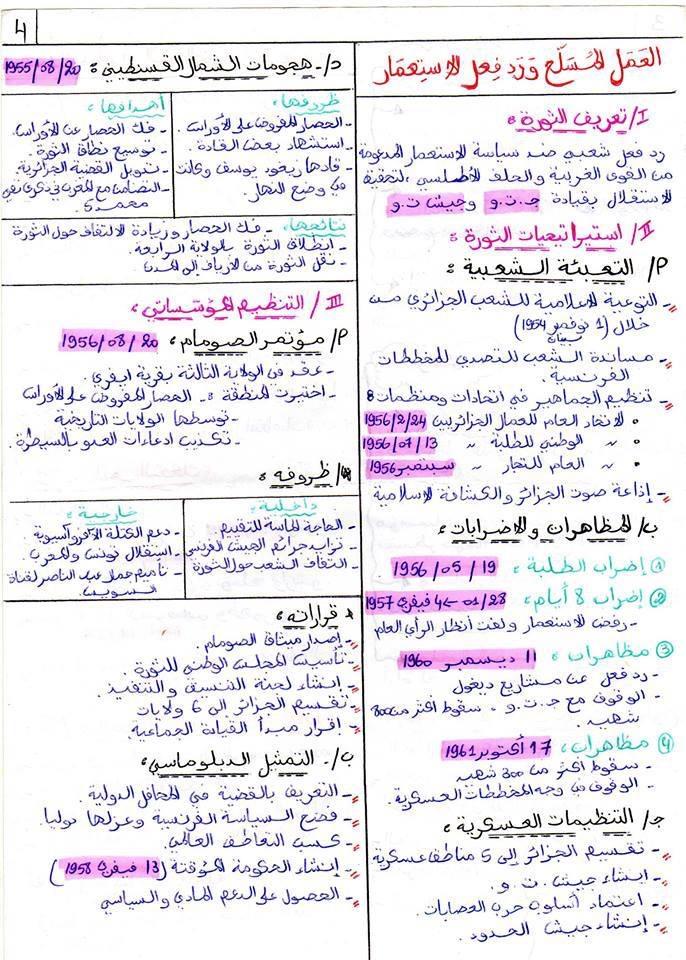 4
العمل المسلح ورد فعل الاستعمار
I/ تعريف الثورة :
رد فعل شعبي ضد سياسة الاستعمار المدعومة
من القوى الغربية والحلف الأطلسي، لتحقيق
الاستقلال بقيادة ج.ت.و وجيش ت.و
II/ استراتيجيات الثورة :
P/ التعبئة الشعبية :
- التوعية الإعلامية للشعب الجزائري من
خلال (1 نوفمبر 1954)
بيان
- مساندة الشعب للتصدي للمخططات
الفرنسية.
- تنظيم الجماهير في اتحادات ومنظمات :
• الاتحاد العام للعمال الجزائريين 1956/2/24
• " الوطني للطلبة " 1956/07/13
• " العام للتجار " سبتمبر 1956
- إذاعة صوت الجزائر والكشافة الإسلامية
ب/ المظاهرات والاضرابات :
① إضراب الطلبة : 1956/05/19
② إضراب 8 أيام : 01/28 ← 4 فيفري 1957
- رفض الاستعمار ولفت أنظار الرأي العام
③ مظاهرات : 11 ديسمبر 1960
- رد فعل عن مشاريع ديغول
- الوقوف مع ج.ت.و، سقوط أكثر من 800
شهيد.
④ مظاهرات : 17 أكتوبر 1961
- سقوط أكثر من 300 شهيد
- الوقوف في وجه المخططات العسكرية.
ج/ التنظيمات العسكرية :
- تقسيم الجزائر إلى 5 مناطق عسكرية
- إنشاء جيش.ت.و.
- اعتماد أسلوب حرب العصابات.
- إنشاء جيش الحدود.
د/- هجومات الشمال القسنطيني : 1955/08/20
ظروفها :
- الحصار المفروض على الأوراس
- استشهاد بعض القادة.
- قادها زيغود يوسف وكانت
في وضح النهار.
أهدافها :
- فك الحصار عن الأوراس.
- توسيع نطاق الثورة
- تدويل القضية الجزائرية.
- التضامن مع المغرب في ذكرى نفي
محمد 5.
نتائجها : - فك الحصار وزيادة الالتفاف حول الثورة
- انطلاق الثورة بالولاية الرابعة.
- نقل الثورة من الأرياف إلى المدن.
III/ التنظيم المؤسساتي :
P/ مؤتمر الصومام : 1956/08/20
- عقد في الولاية الثالثة بقرية ايفري.
- اختيرت المنطقة : - الحصار المفروض على الأوراس
- توسطها الولايات التاريخية
- تكذيب ادعاءات العدو بالسيطرة.
/ ظروفه :
داخلية :
- الحاجة الماسة للتقييم
- تزايد جرائم الجيش الفرنسي
- التفاف الشعب حول الثورة
خارجية :
- دعم الكتلة الأفروآسيوية
- استقلال تونس والمغرب.
- تأميم جمال عبد الناصر لقناة
السويس.
قراراته :
- إصدار ميثاق الصومام.
- تأسيس المجلس الوطني للثورة.
- إنشاء لجنة التنسيق والتنفيذ.
- تقسيم الجزائر إلى 6 ولايات
- إقرار مبدأ القيادة الجماعية.
ب/. التمثيل الدبلوماسي :
- التعريف بالقضية في المحافل الدولية.
- فضح السياسة الفرنسية وعزلها دوليا.
- كسب التعاطف العالمي.
- إنشاء الحكومة المؤقتة (13 فيفري 1958)
- الحصول على الدعم المادي والسياسي